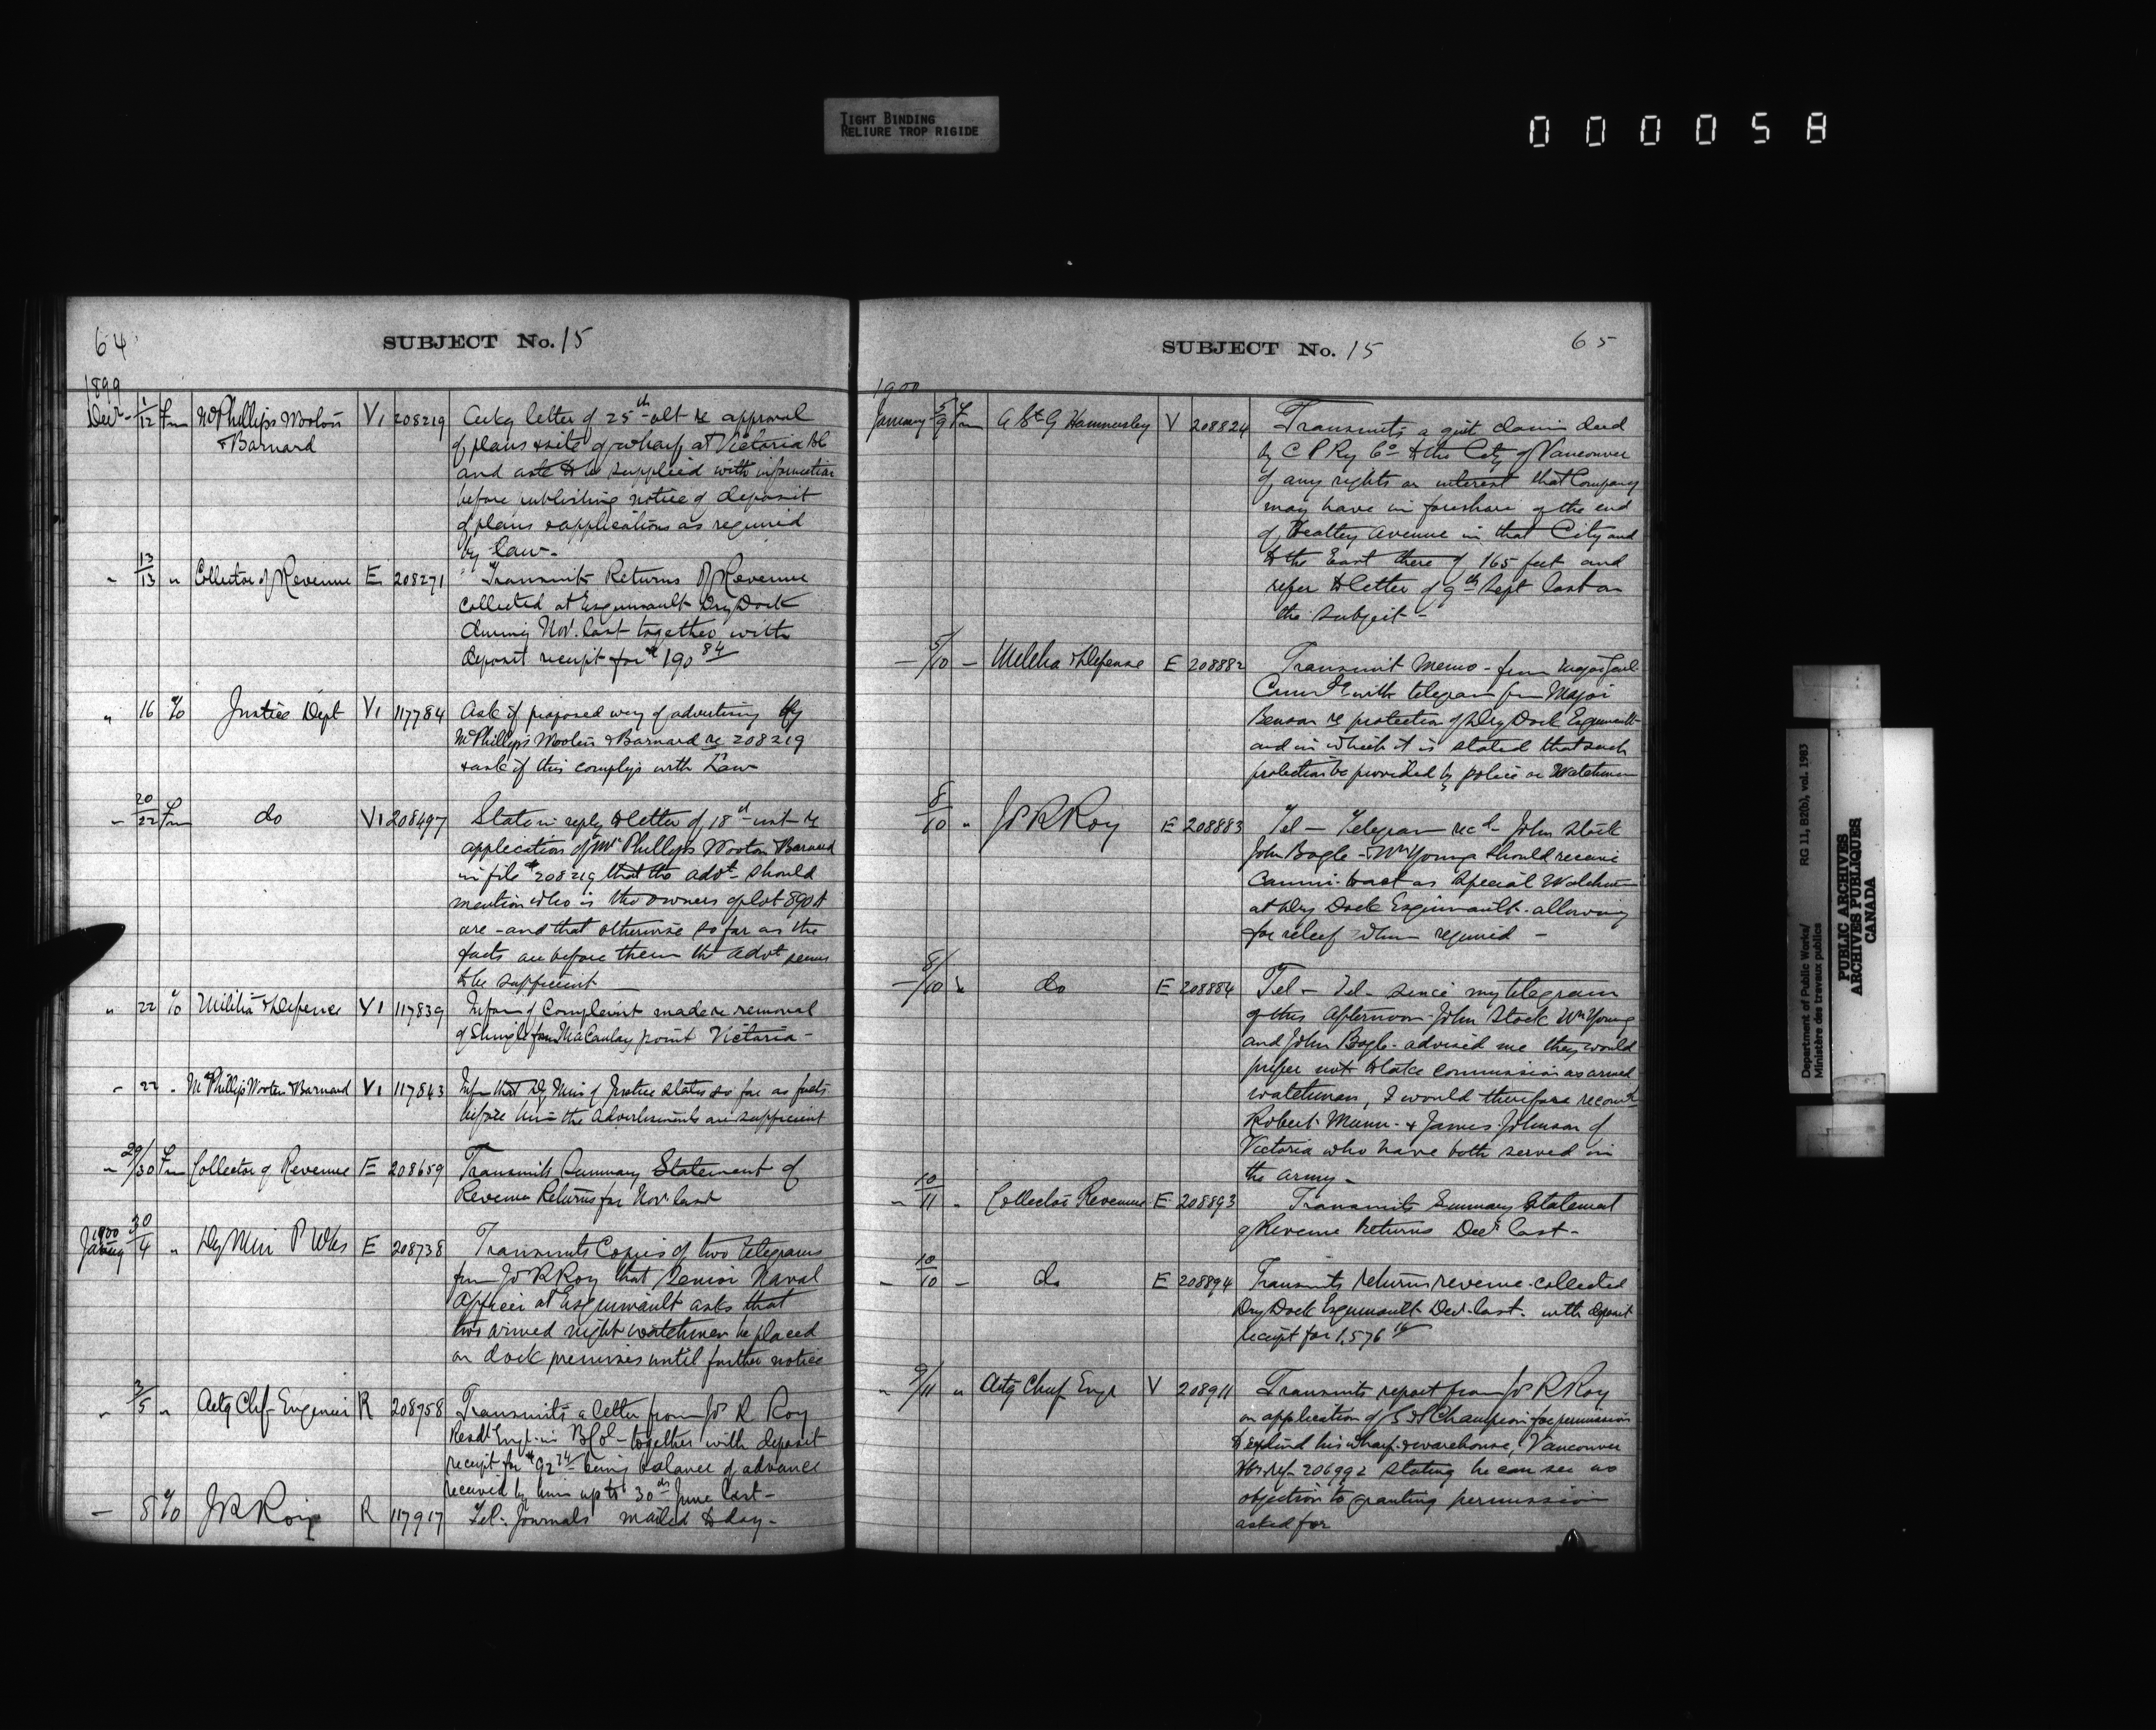 TIGHT BINDING
RELIURE TROP RIGIDE
000058
64
SUBJECT No. 15
1899
Decr - 1/12 Fm McPhillips Wooton V1 208219 Ackg letter of 25th ult re approval
& Barnard of plans & site of wharf at Victoria BC
and ask to be supplied with information
before publishing notice of deposit
of plans & applications as required
by law-
" 13/13 " Collector of Revenue E 208271 Transmits Returns of Revenue
collected at Esquimault Dry Dock
during Novr. last together with
deposit receipt for $190 84
" 16 %0 Justice Dept V1 117784 Ask if proposed way of advertising by
McPhillips Wooten & Barnard re 208219
& ask if this complys with Law
" 20/22 Fm do V1 208497 State in reply to letter of 18th inst re
application of McPhillips Wooton & Barnard
in file # 208219 that the advt- should
mention who is the owners of lot 890A
are - and that otherwise so far as the
facts are before them the advt seems
to be sufficient
" 22 %0 Militia & Defence V1 117839 Inform of Complaint made re removal
of Shingle from MaCaulay point Victoria -
" 22 " McPhillips Wooten & Barnard V1 117843 Infm that Dy Min of Justice states so far as facts
before him the Advertisments are sufficient
" 29/30 Fm Collector of Revenue E 208659 Transmits Summary Statement of
Revenue Returns for Novr last
1900
January 30/4 " Dy Min P Wks E 208738 Transmits Copies of two telegrams
from Js R Roy that Senior Naval
Officer at Esquimault asks that
two armed night watchmen be placed
on dock premises until further notice
" 3/5 " Actg Chf- Engineer R 208758 Transmits a letter from Js R Roy
Resdt Engr- in B Col- together with deposit
receipt for $92 74 being balance of advance
received by him up to 30th June last-
- 8 %0 J R Roy R 117917 Tel- Journals mailed to day-
65
SUBJECT No. 15
1900
January 5/9 Fm A St G Hammersley V 208824 Transmits a quit claim deed
by C P Ry Co to the City of Vancouver
of any rights or interest that Company
may have in foreshore of the end
of Heatley Avenue in that City and
to the East there of 165 feet and
refer to letter of 9th Sept last on
the subject-
- 5/10 - Militia & Defense E 208882 Transmit Memo - from Major Genl
Comdg with telegram from Major
Benson re protection of Dry Dock Esquimault
and in which it is stated that such
protection be provided by police or Watchmen
8/10 " Js R Roy E 208883 Tel - Telegram recd- John Stock
John Bogle - & Wm Young should receive
Commi. to act as Special Watchmen
at Dry Dock Esquimault - allowing
for relief when required -
- 8/10 " do E 208884 Tel - Tel - since my telegram
of this afternoon John Stock Wm Young
and John Bogle - advised me they would
prefer not to take commission as armed
watchmen, I would therefore recomd
Robert Munn - & James Johnson of
Victoria who have both served in
the army -
" 10/11 " Collector Revenue E 208893 Transmits Summary Statement
of Revenue Returns Decr last-
- 10/10 - do E 208894 Transmits returns revenue collected
Dry Dock Esquimault Decr last - with deposit
receipt for 1,576 16
" 9/11 " Actg Chief Engr V 208911 Transmits report from Js R Roy
on application of Champion for permission
to extend his wharf & warehouse, Vancouver
ref- 206992 stating he can see no
objection to granting permission
asked for
Department of Public Works/
Ministère des travaux publics
RG 11, B2(b), vol. 1983
PUBLIC ARCHIVES
ARCHIVES PUBLIQUES
CANADA